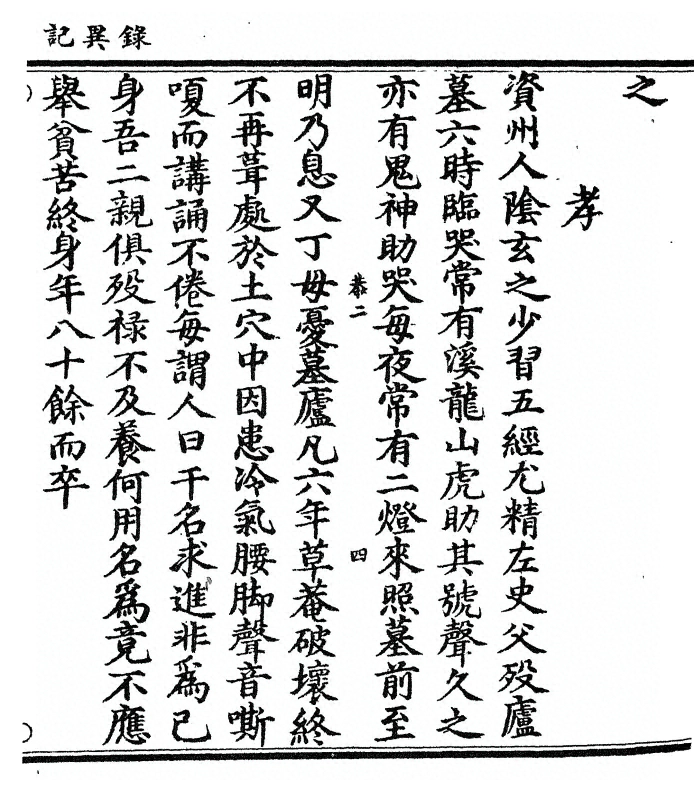 錄異記
之
孝
資州人陰玄之少習五經尤精左史父歿廬
墓六時臨哭常有溪龍山虎助其號聲久之
亦有鬼神助哭每夜常有二燈來照墓前至
恭二
四
明乃息又丁母憂墓廬凡六年草菴破壞終
不再葺處於土穴中因患冷氣腰脚聲音嘶
嗄而講誦不倦每謂人曰千名求進非爲己
身吾二親俱歿禄不及養何用名爲竟不應
舉貧苦終身年八十餘而卒